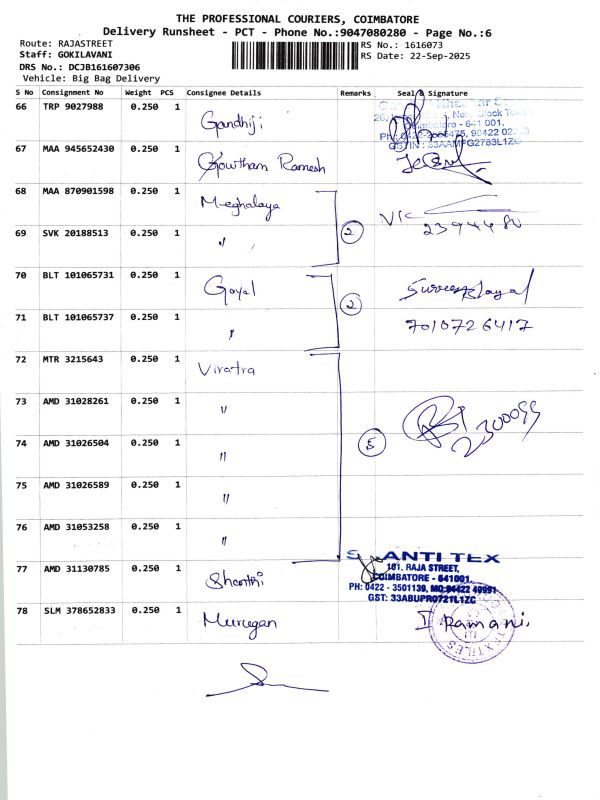 THE PROFESSIONAL COURIERS, COIMBATORE
Delivery Runsheet - PCT - Phone No.:9047080280 - Page No.:6
Route: RAJASTREET
RS No.: 1616073
Staff: GOKILAVANI
RS Date: 22-Sep-2025
DRS No.: DCJB161607306
Vehicle: Big Bag Delivery
S No Consignment No Weight PCS Consignee Details Remarks Seal & Signature
66 TRP 9027988 0.250 1 Gandhiji
641 001.
GSTIN : 33AAMFG2783L1ZC
67 MAA 945652430 0.250 1 Gowtham Ramesh
68 MAA 870901598 0.250 1 Meghalaya
69 SVK 20188513 0.250 1 〃 2 2394480
70 BLT 101065731 0.250 1 Goyal
71 BLT 101065737 0.250 1 〃 2 7010726417
72 MTR 3215643 0.250 1 Viratra
73 AMD 31028261 0.250 1 〃
74 AMD 31026504 0.250 1 〃 5 2300099
75 AMD 31026589 0.250 1 〃
76 AMD 31053258 0.250 1 〃
77 AMD 31130785 0.250 1 Shanthi
ANTI TEX
101, RAJA STREET,
COIMBATORE - 641001.
PH: 0422 - 3501139, MO:94422 49991
GST: 33ABUPR0721L1ZC
78 SLM 378652833 0.250 1 Murugan I Ramani.